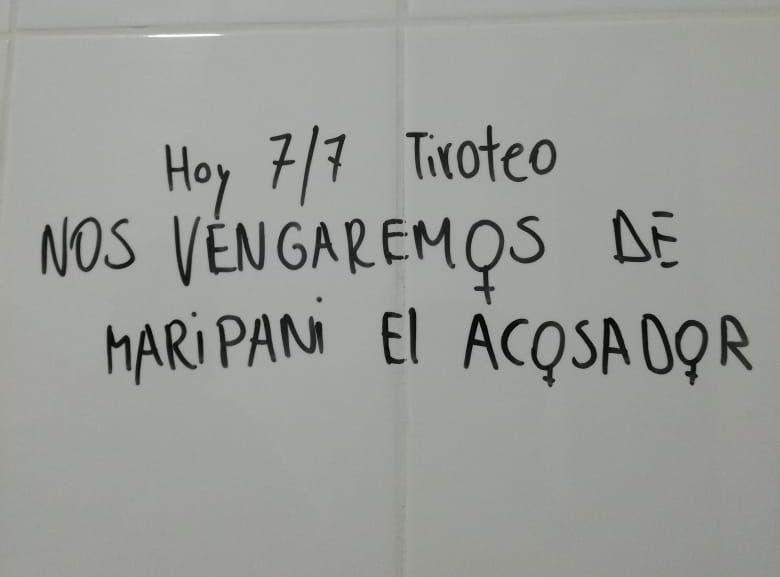 Hoy 7/7 Tiroteo
NOS VENGAREMOS DE
MARiPANi El ACOSADOR